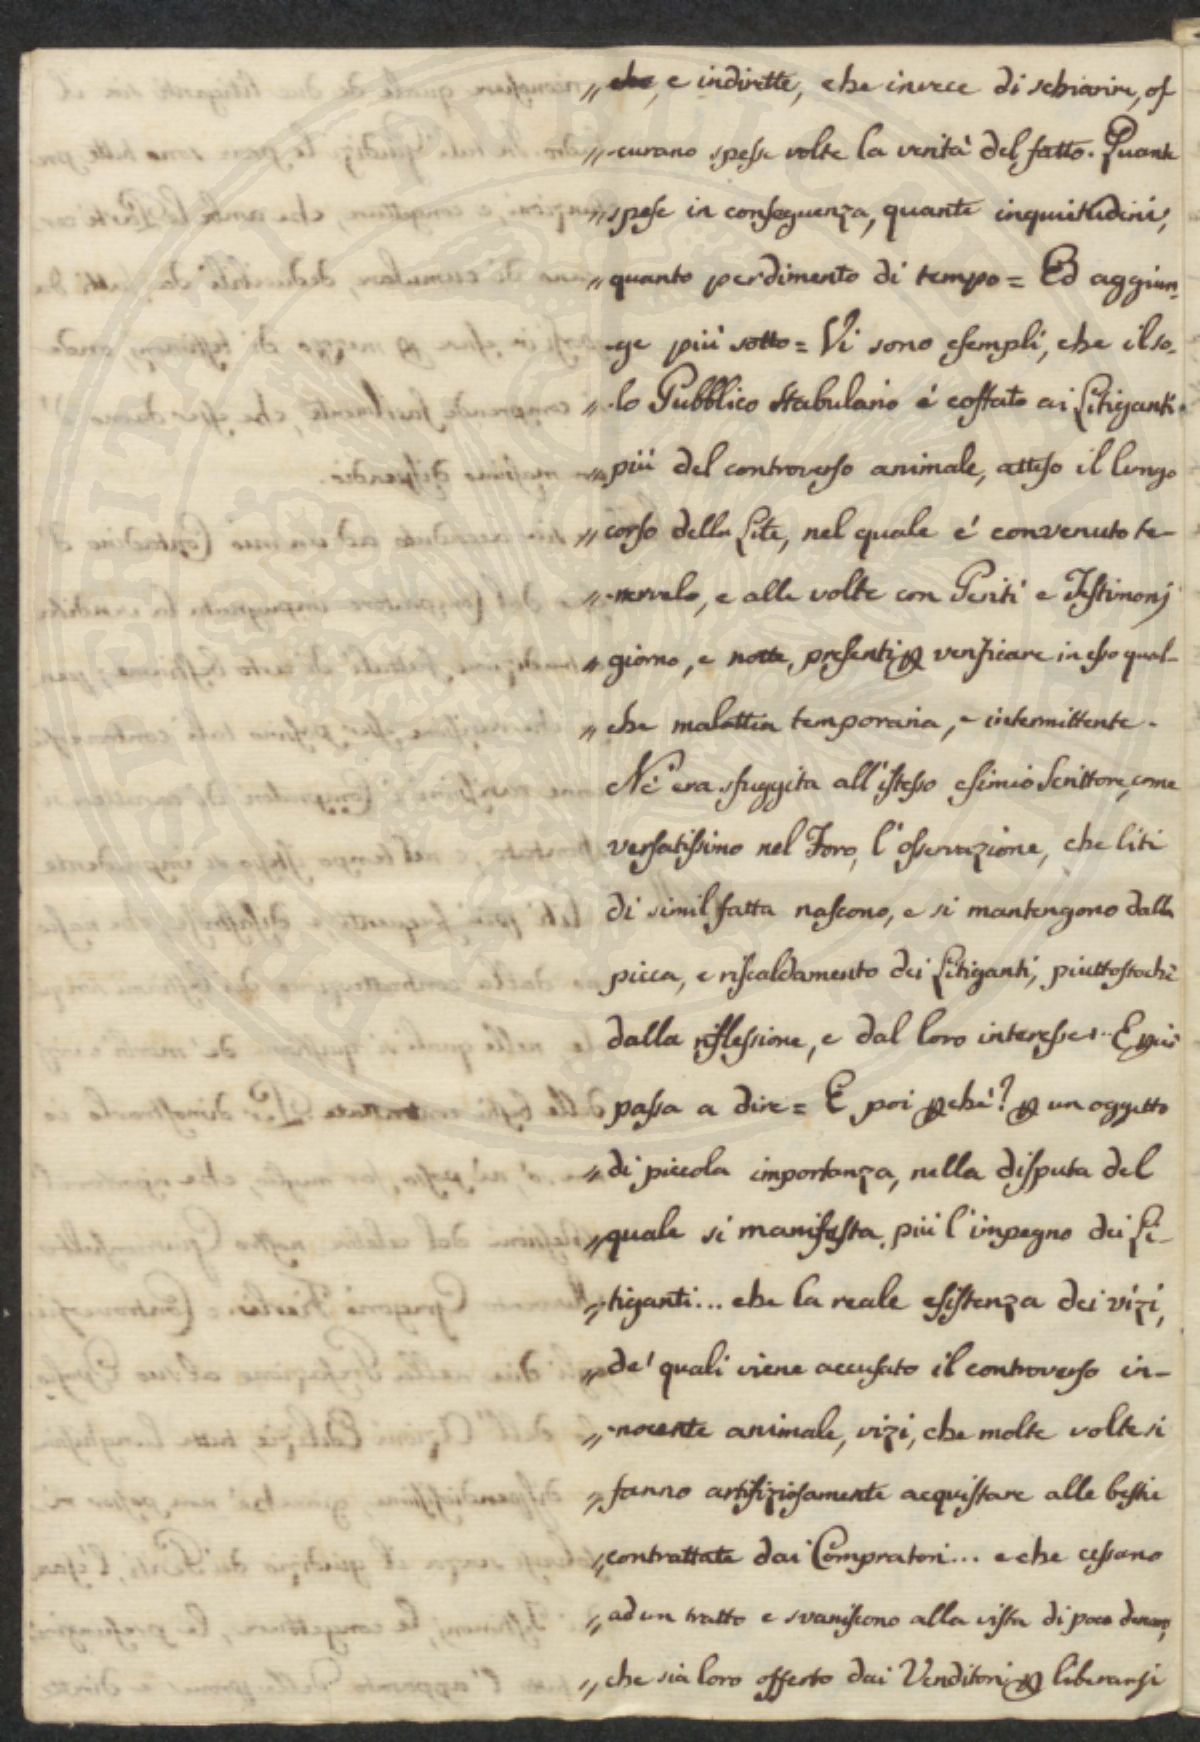 „ che, e indirette, che invece di schiarire, os
„ curano spesse volte la verità del fatto. Quante
„ spese in conseguenza, quante inquietudini,
„ quanto perdimento di tempo = Ed aggiun-
ge più sotto = Vi sono esempli, che il so-
„ lo Pubblico stabulario è costato ai Litiganti
„ più del controverso animale, atteso il lungo
„ corso della Lite, nel quale è convenuto te-
„ nervelo, e alle volte con Periti e Testimonj
„ giorno, e notte, presenti p verificare in esso qual-
„ che malattia temporaria, e intermittente.
Nè era sfuggita all'istesso esimio Scrittore, come
versatissimo nel Foro, l'osservazione, che liti
di simil fatta nascono, e si mantengono dalla
picca, e riscaldamento dei Litiganti, piuttostochè
dalla riflessione, e dal loro interesse... E quì
passa a dire = E poi pchè? p un oggetto
„ di piccola importanza, nella disputa del
„ quale si manifesta più l'impegno dei Li-
„ tiganti... che la reale esistenza dei vizi,
„ de' quali viene accusato il controverso in-
„ nocente animale, vizi, che molte volte si
„ fanno artifiziosamente acquistare alle bestie
„ contrattate dai Compratori... e che cessano
„ ad un tratto e svaniscono alla vista di poco denaro,
„ che sia loro offerto dai Venditori p liberarsi